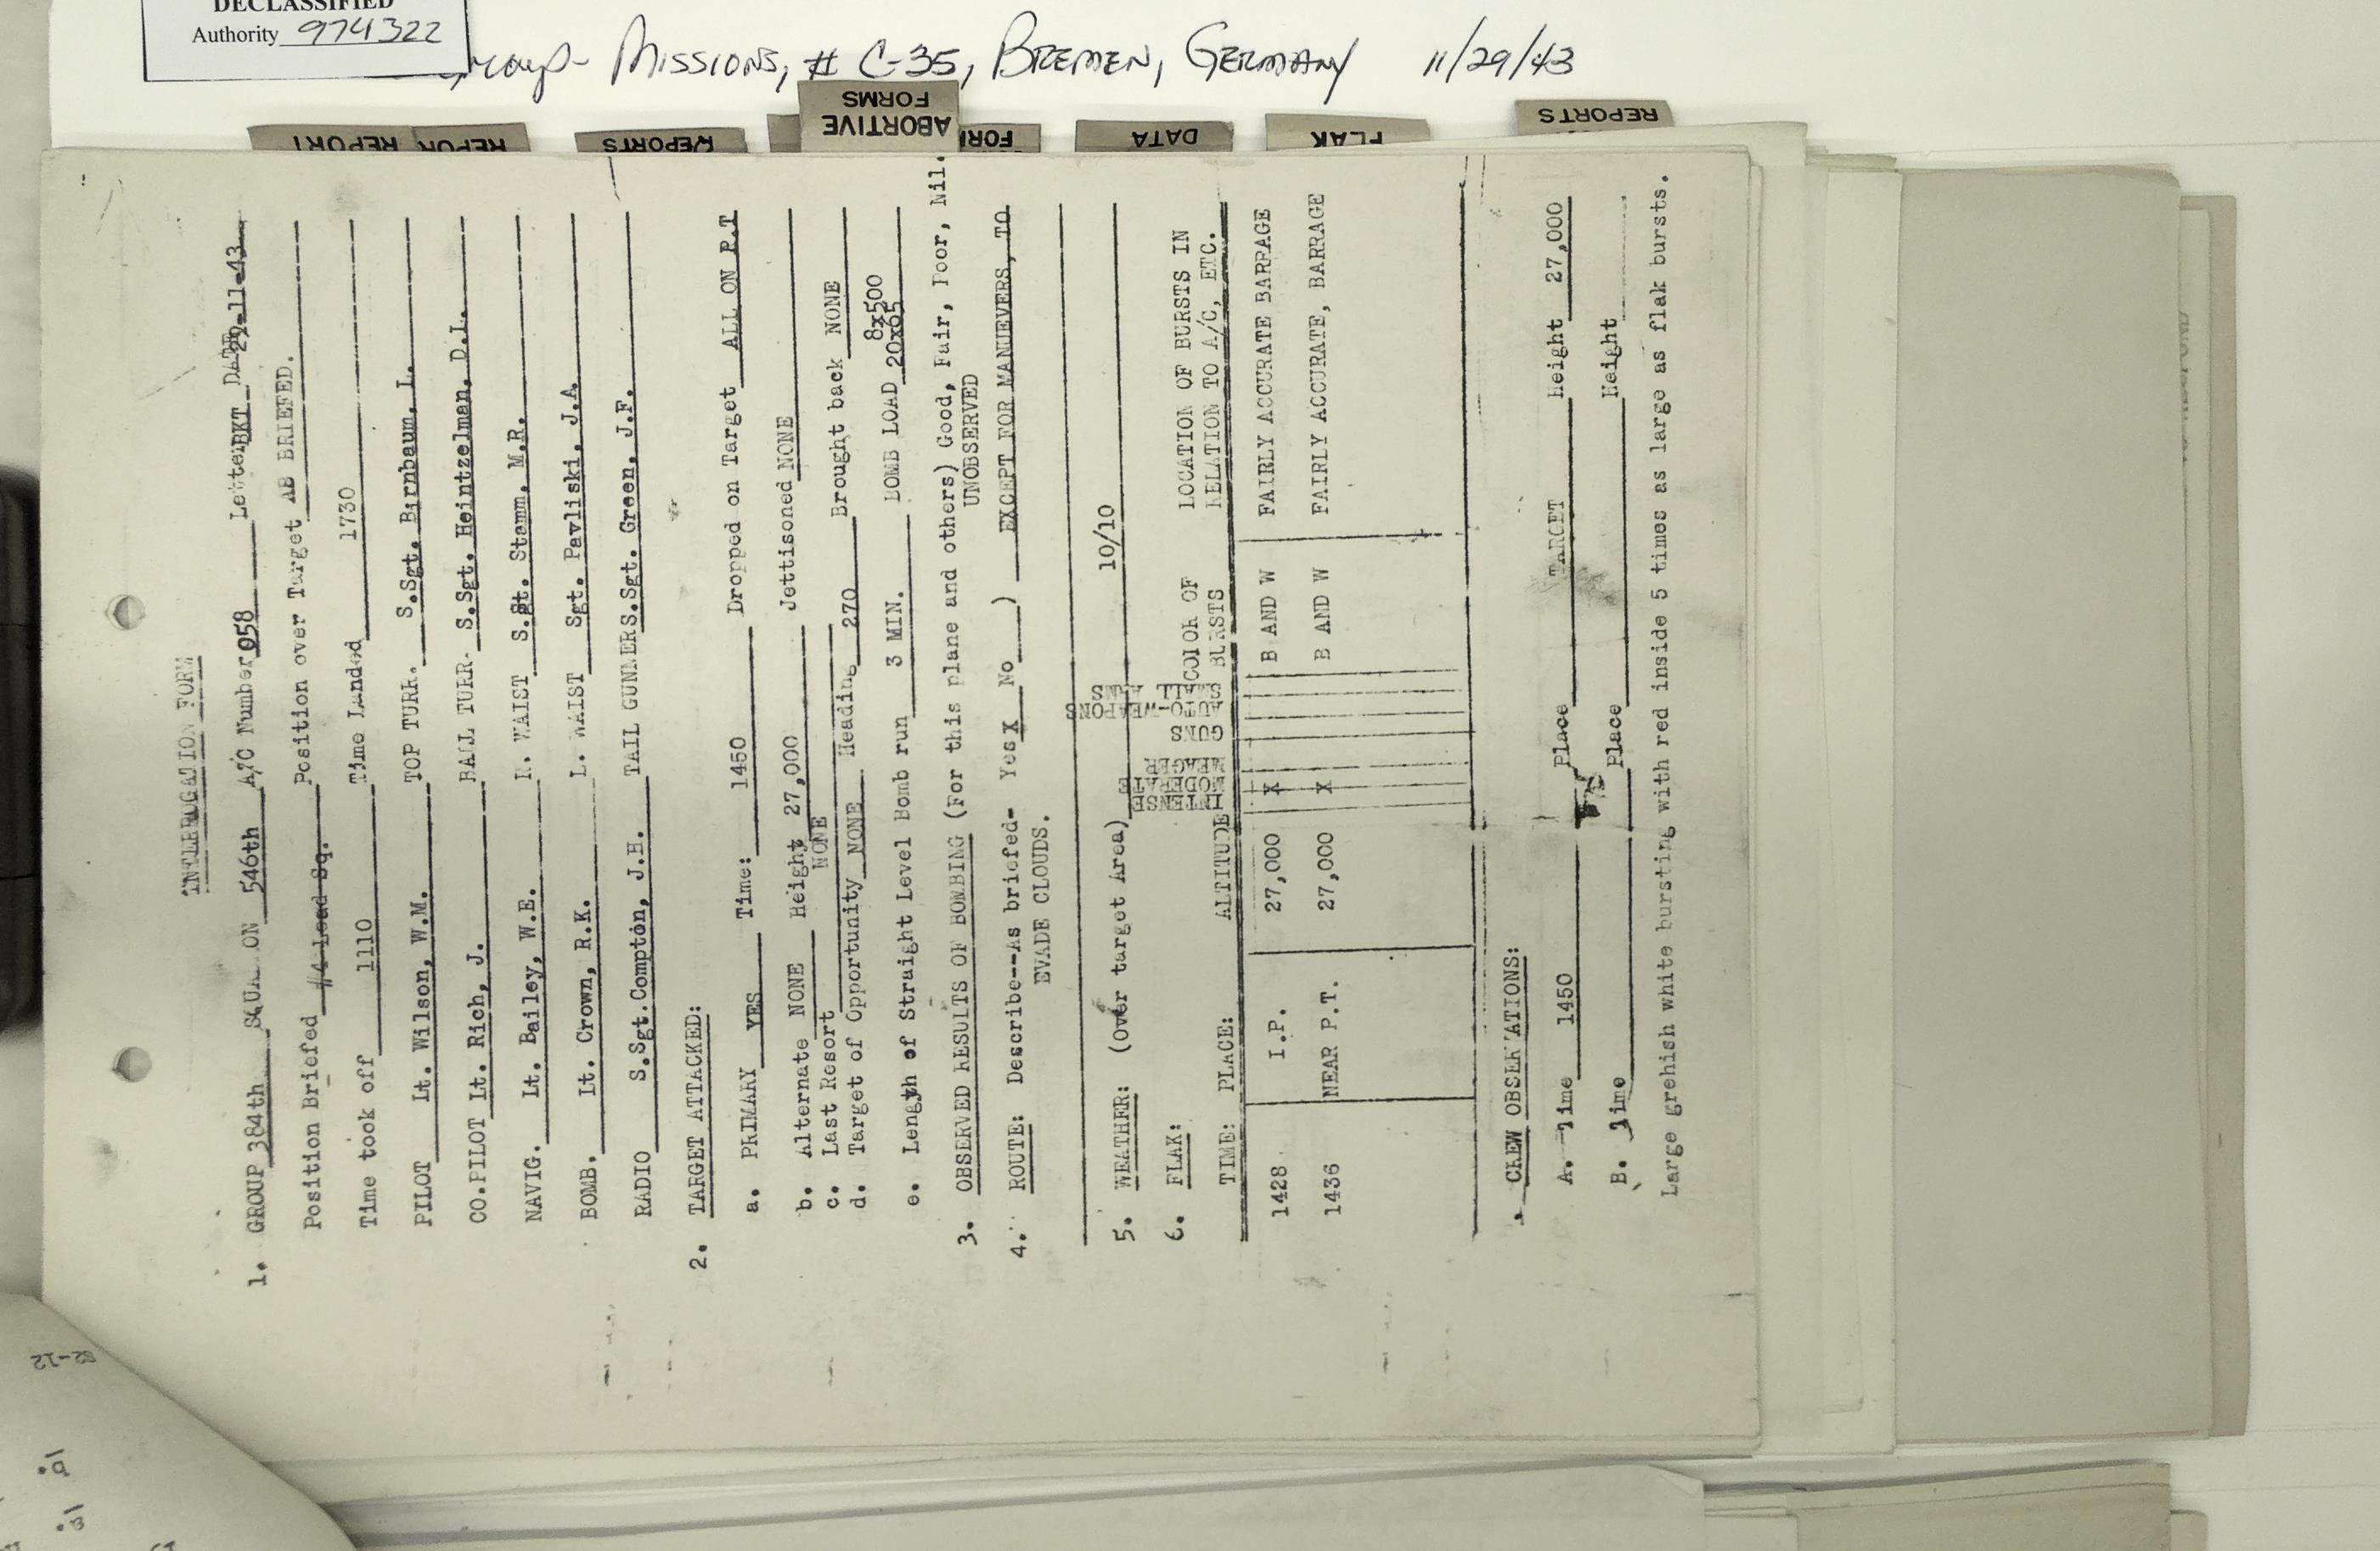 DECLASSIFIED
Authority 974322
Group- MISSIONS, # C-35, BREMEN, GERMANY 11/29/43
REPORT
REPORT
REPORTS
ABORTIVE
FORMS
DATA
FLAK
REPORTS
INTERROGATION FORM
1. GROUP 384th SQUADRON 546th A/C Number 058 Letter BKT DATE 29-11-43
Position Briefed #4 Lead Sq. Position over Target AB BRIEFED.
Time took off 1110 Time Landed 1730
PILOT Lt. Wilson, W.M. TOP TURR. S.Sgt. Birnbaum, L.
CO.PILOT Lt. Rich, J. BALL TURR. S.Sgt. Heintzelman, D.L.
NAVIG. Lt. Bailey, W.E. R. WAIST S.Sgt. Stamm, M.R.
BOMB. Lt. Crown, R.K. L. WAIST Sgt. Pavliski, J.A
RADIO S.Sgt.Compton, J.H. TAIL GUNNER S.Sgt. Green, J.F.
2. TARGET ATTACKED:
a. PRIMARY YES Time: 1450 Dropped on Target ALL ON P.T
b. Alternate NONE Height 27,000 Jettisoned NONE
c. Last Resort NONE
d. Target of Opportunity NONE Heading 270 Brought back NONE
e. Length of Straight Level Bomb run 3 MIN. BOMB LOAD 8x500 20x65
3. OBSERVED RESULTS OF BOMBING (For this plane and others) Good, Fair, Poor, Nil.
UNOBSERVED
4. ROUTE: Describe--As briefed- Yes X No ) EXCEPT FOR MANUEVERS, TO
EVADE CLOUDS.
5. WEATHER: (Over target Area) 10/10
6. FLAK:
TIME: PLACE: ALTITUDE INTENSE MODERATE MEAGER GUNS AUTO-WEAPONS SMALL ARMS COLOR OF BURSTS LOCATION OF BURSTS IN RELATION TO A/C, ETC.
1428 I.P. 27,000 X B AND W FAIRLY ACCURATE BARRAGE
1436 NEAR P.T. 27,000 X B AND W FAIRLY ACCURATE, BARRAGE
CREW OBSERVATIONS:
A. Time 1450 Place TARGET Height 27,000
B. Time Place Height
Large grehish white bursting with red inside 5 times as large as flak bursts.